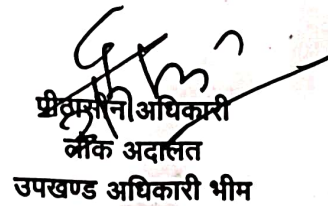 पीठासीन अधिकारी
लोक अदालत
उपखण्ड अधिकारी भीम